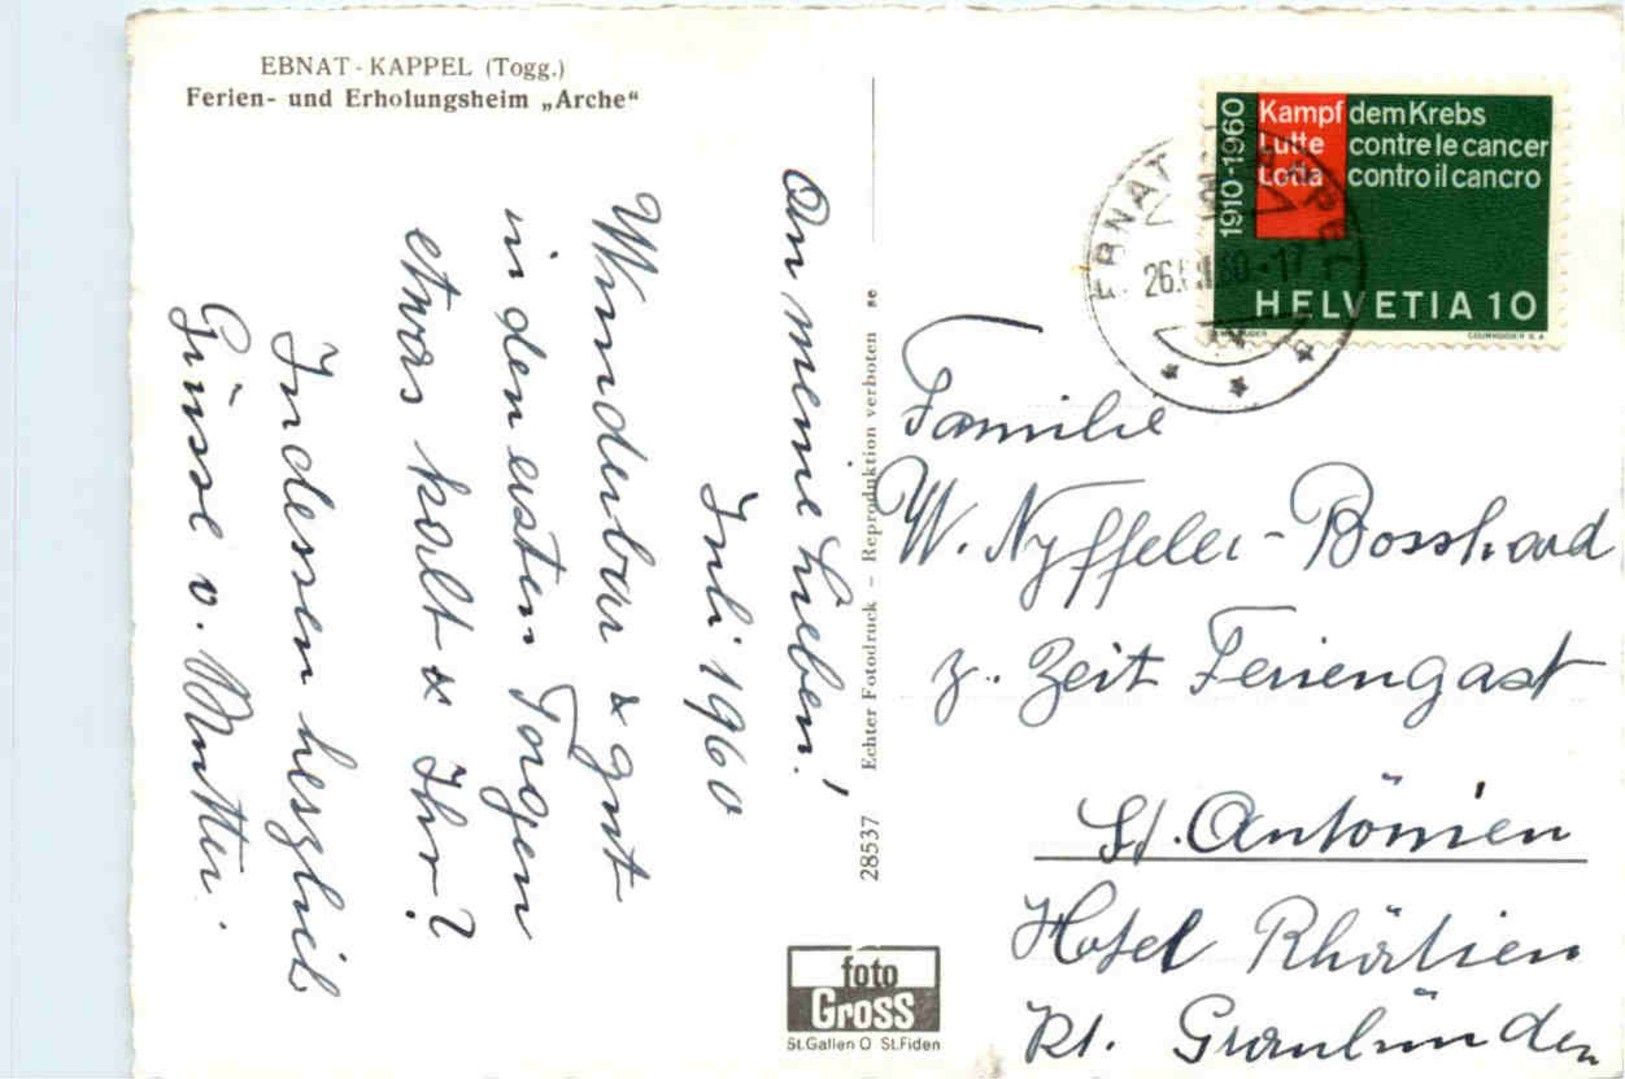 EBNAT-KAPPEL (Togg.)
Ferien- und Erholungsheim „Arche“
An meine Lieben!
Juli 1960
Wunderbar & gut
in den ersten Tagen
etwas kalt & Ihr?
Indessen herzlich
Grüsse v. Mutter.
28537 Echter Fotodruck – Reproduktion verboten se
foto
Gross
St.Gallen O St.Fiden
1910-1960
Kampf dem Krebs
Lutte contre le cancer
Lotta contro il cancro
HELVETIA 10
COURVOISIER S.A.
EBNAT-KAPPEL
26. 60-17
Familie
W. Nyffeler-Bosshard
z. Zeit Feriengast
St. Antönien
Hotel Rhätien
Kt. Graubünden